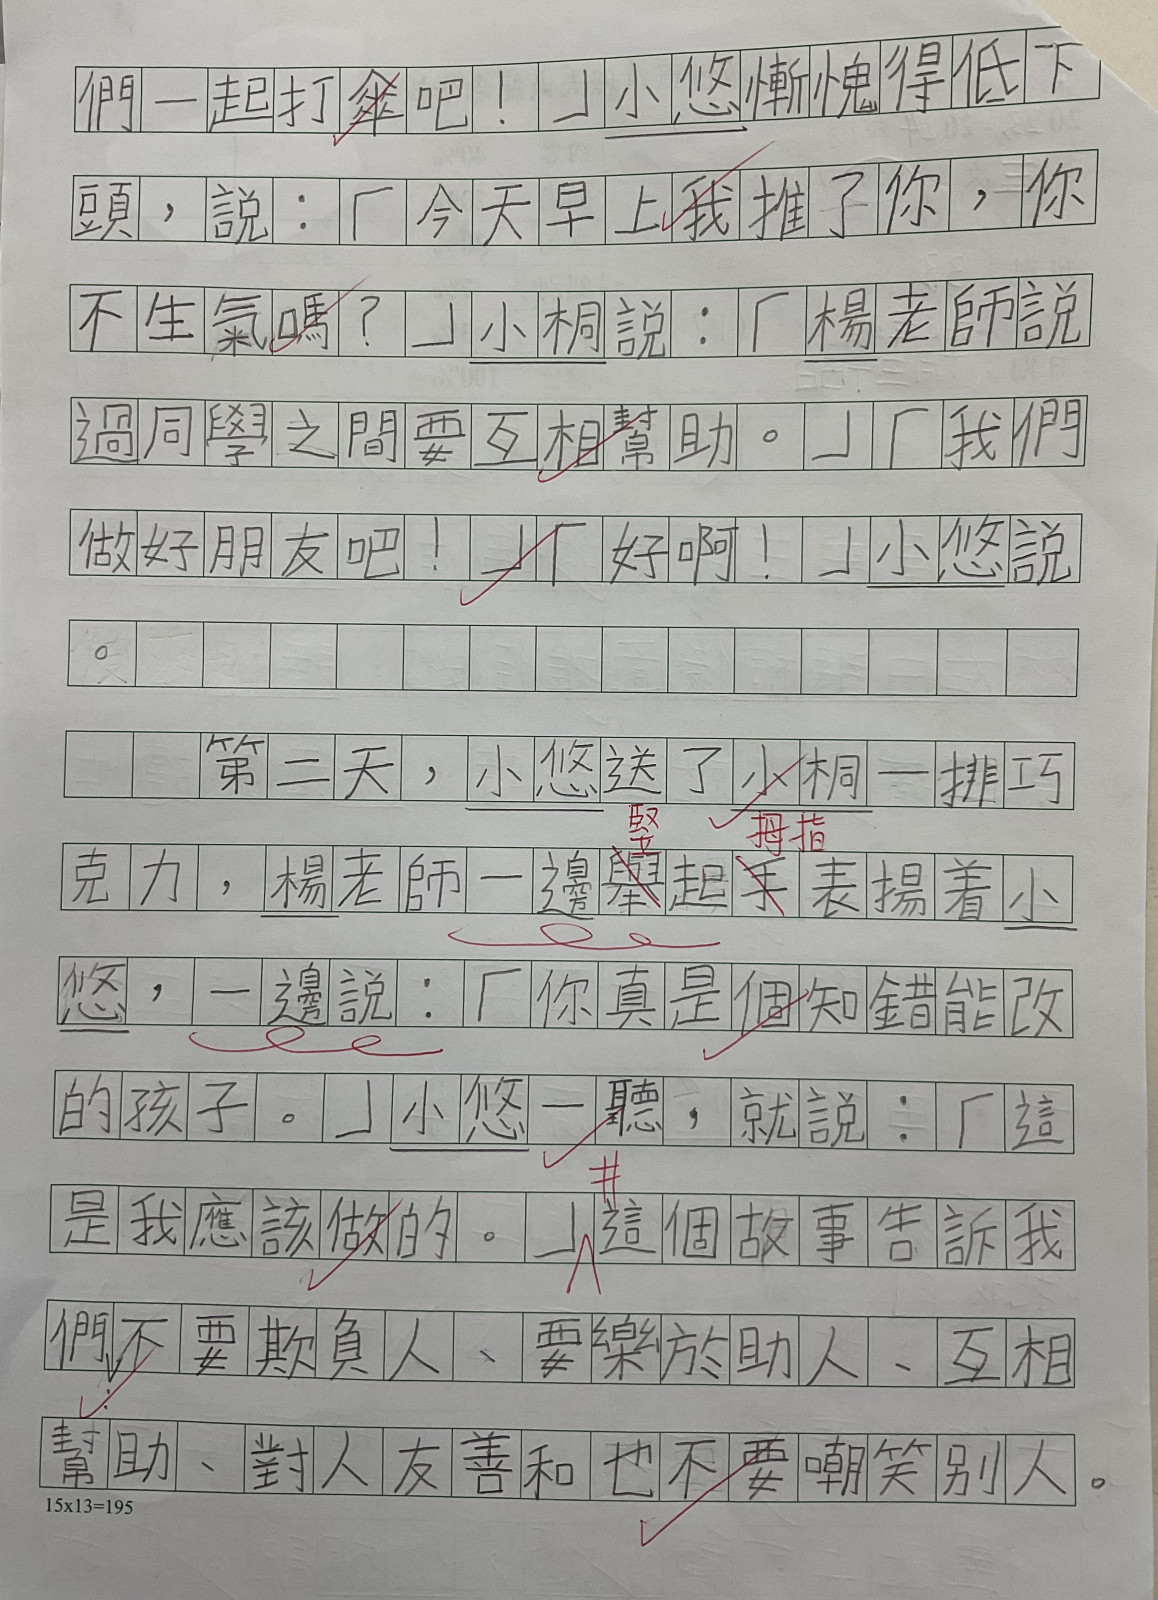 們一起打傘吧！」小悠慚愧得低下
頭，說：「今天早上我推了你，你
不生氣嗎？」小桐說：「楊老師說
過同學之間要互相幫助。」「我們
做好朋友吧！」「好啊！」小悠說
。
第二天，小悠送了小桐一排巧
豎 拇指
克力，楊老師一邊舉起手表揚着小
悠，一邊說：「你真是個知錯能改
的孩子。」小悠一聽，就說：「這
是我應該做的。」這個故事告訴我
們不要欺負人、要樂於助人、互相
幫助、對人友善和也不要嘲笑別人。
15x13=195